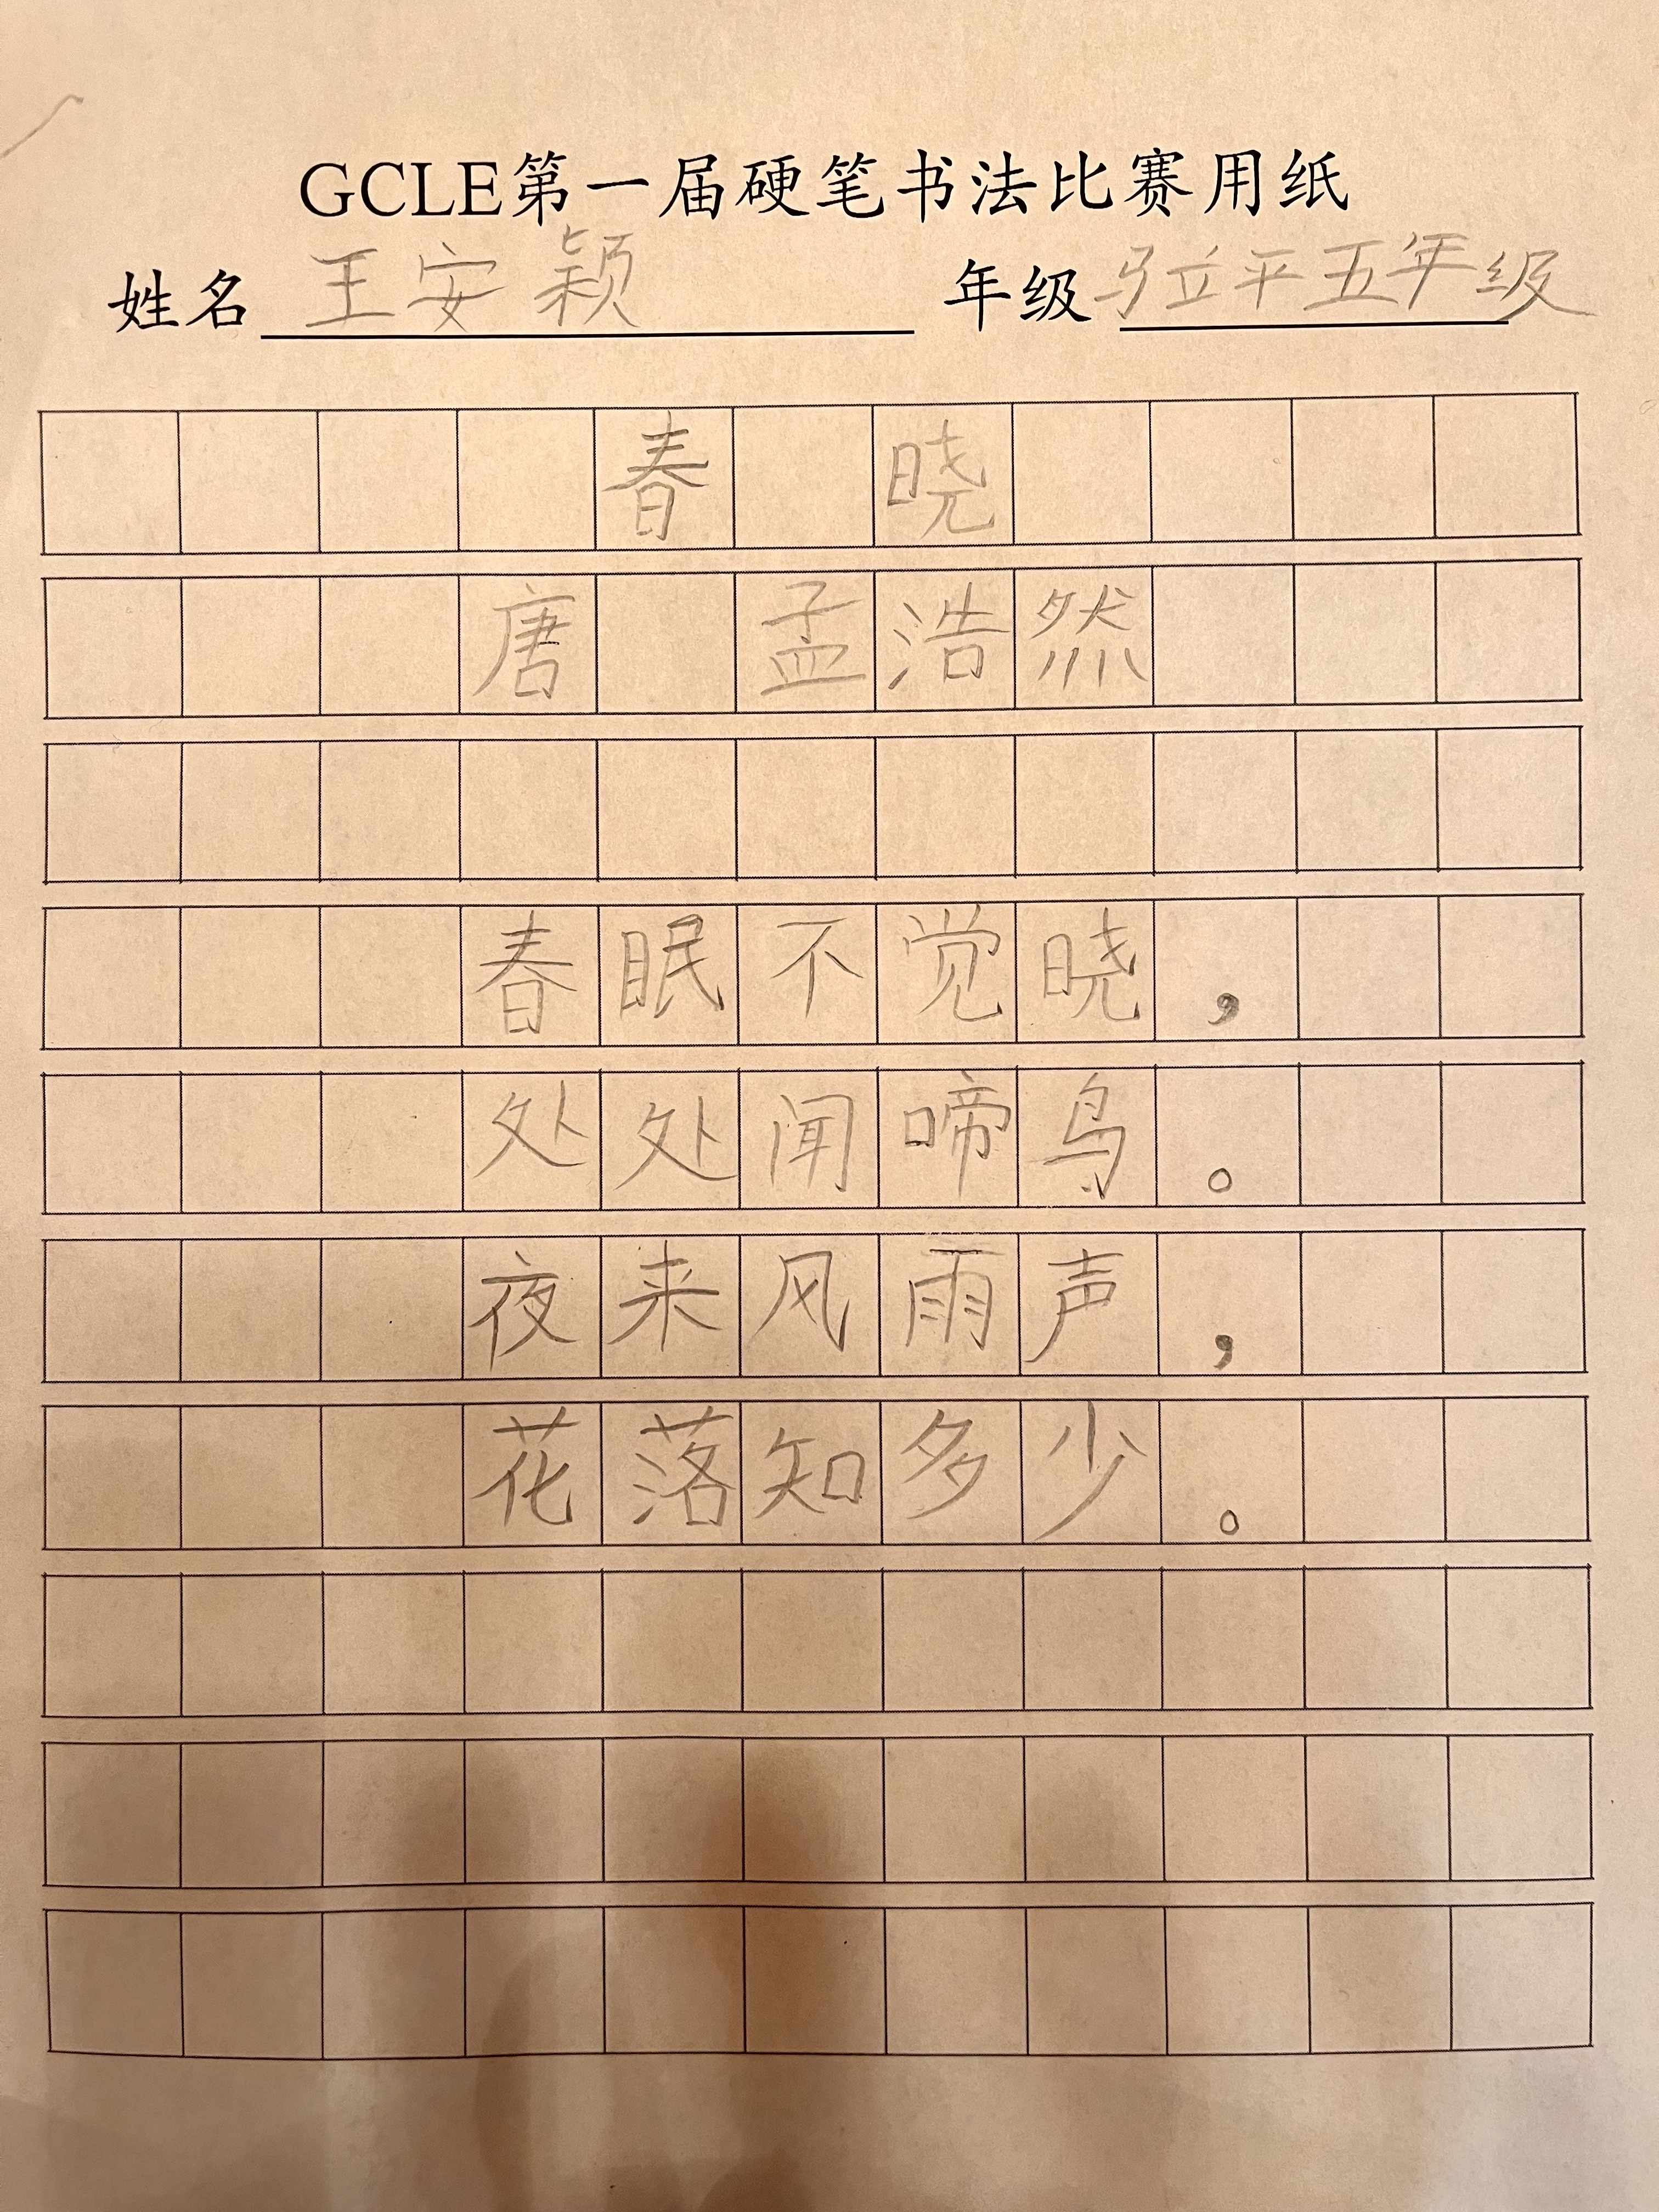 GCLE第一届硬笔书法比赛用纸
姓名 王安颖 年级 马立平五年级
春 晓
唐 孟浩然
春眠不觉晓，
处处闻啼鸟。
夜来风雨声，
花落知多少。